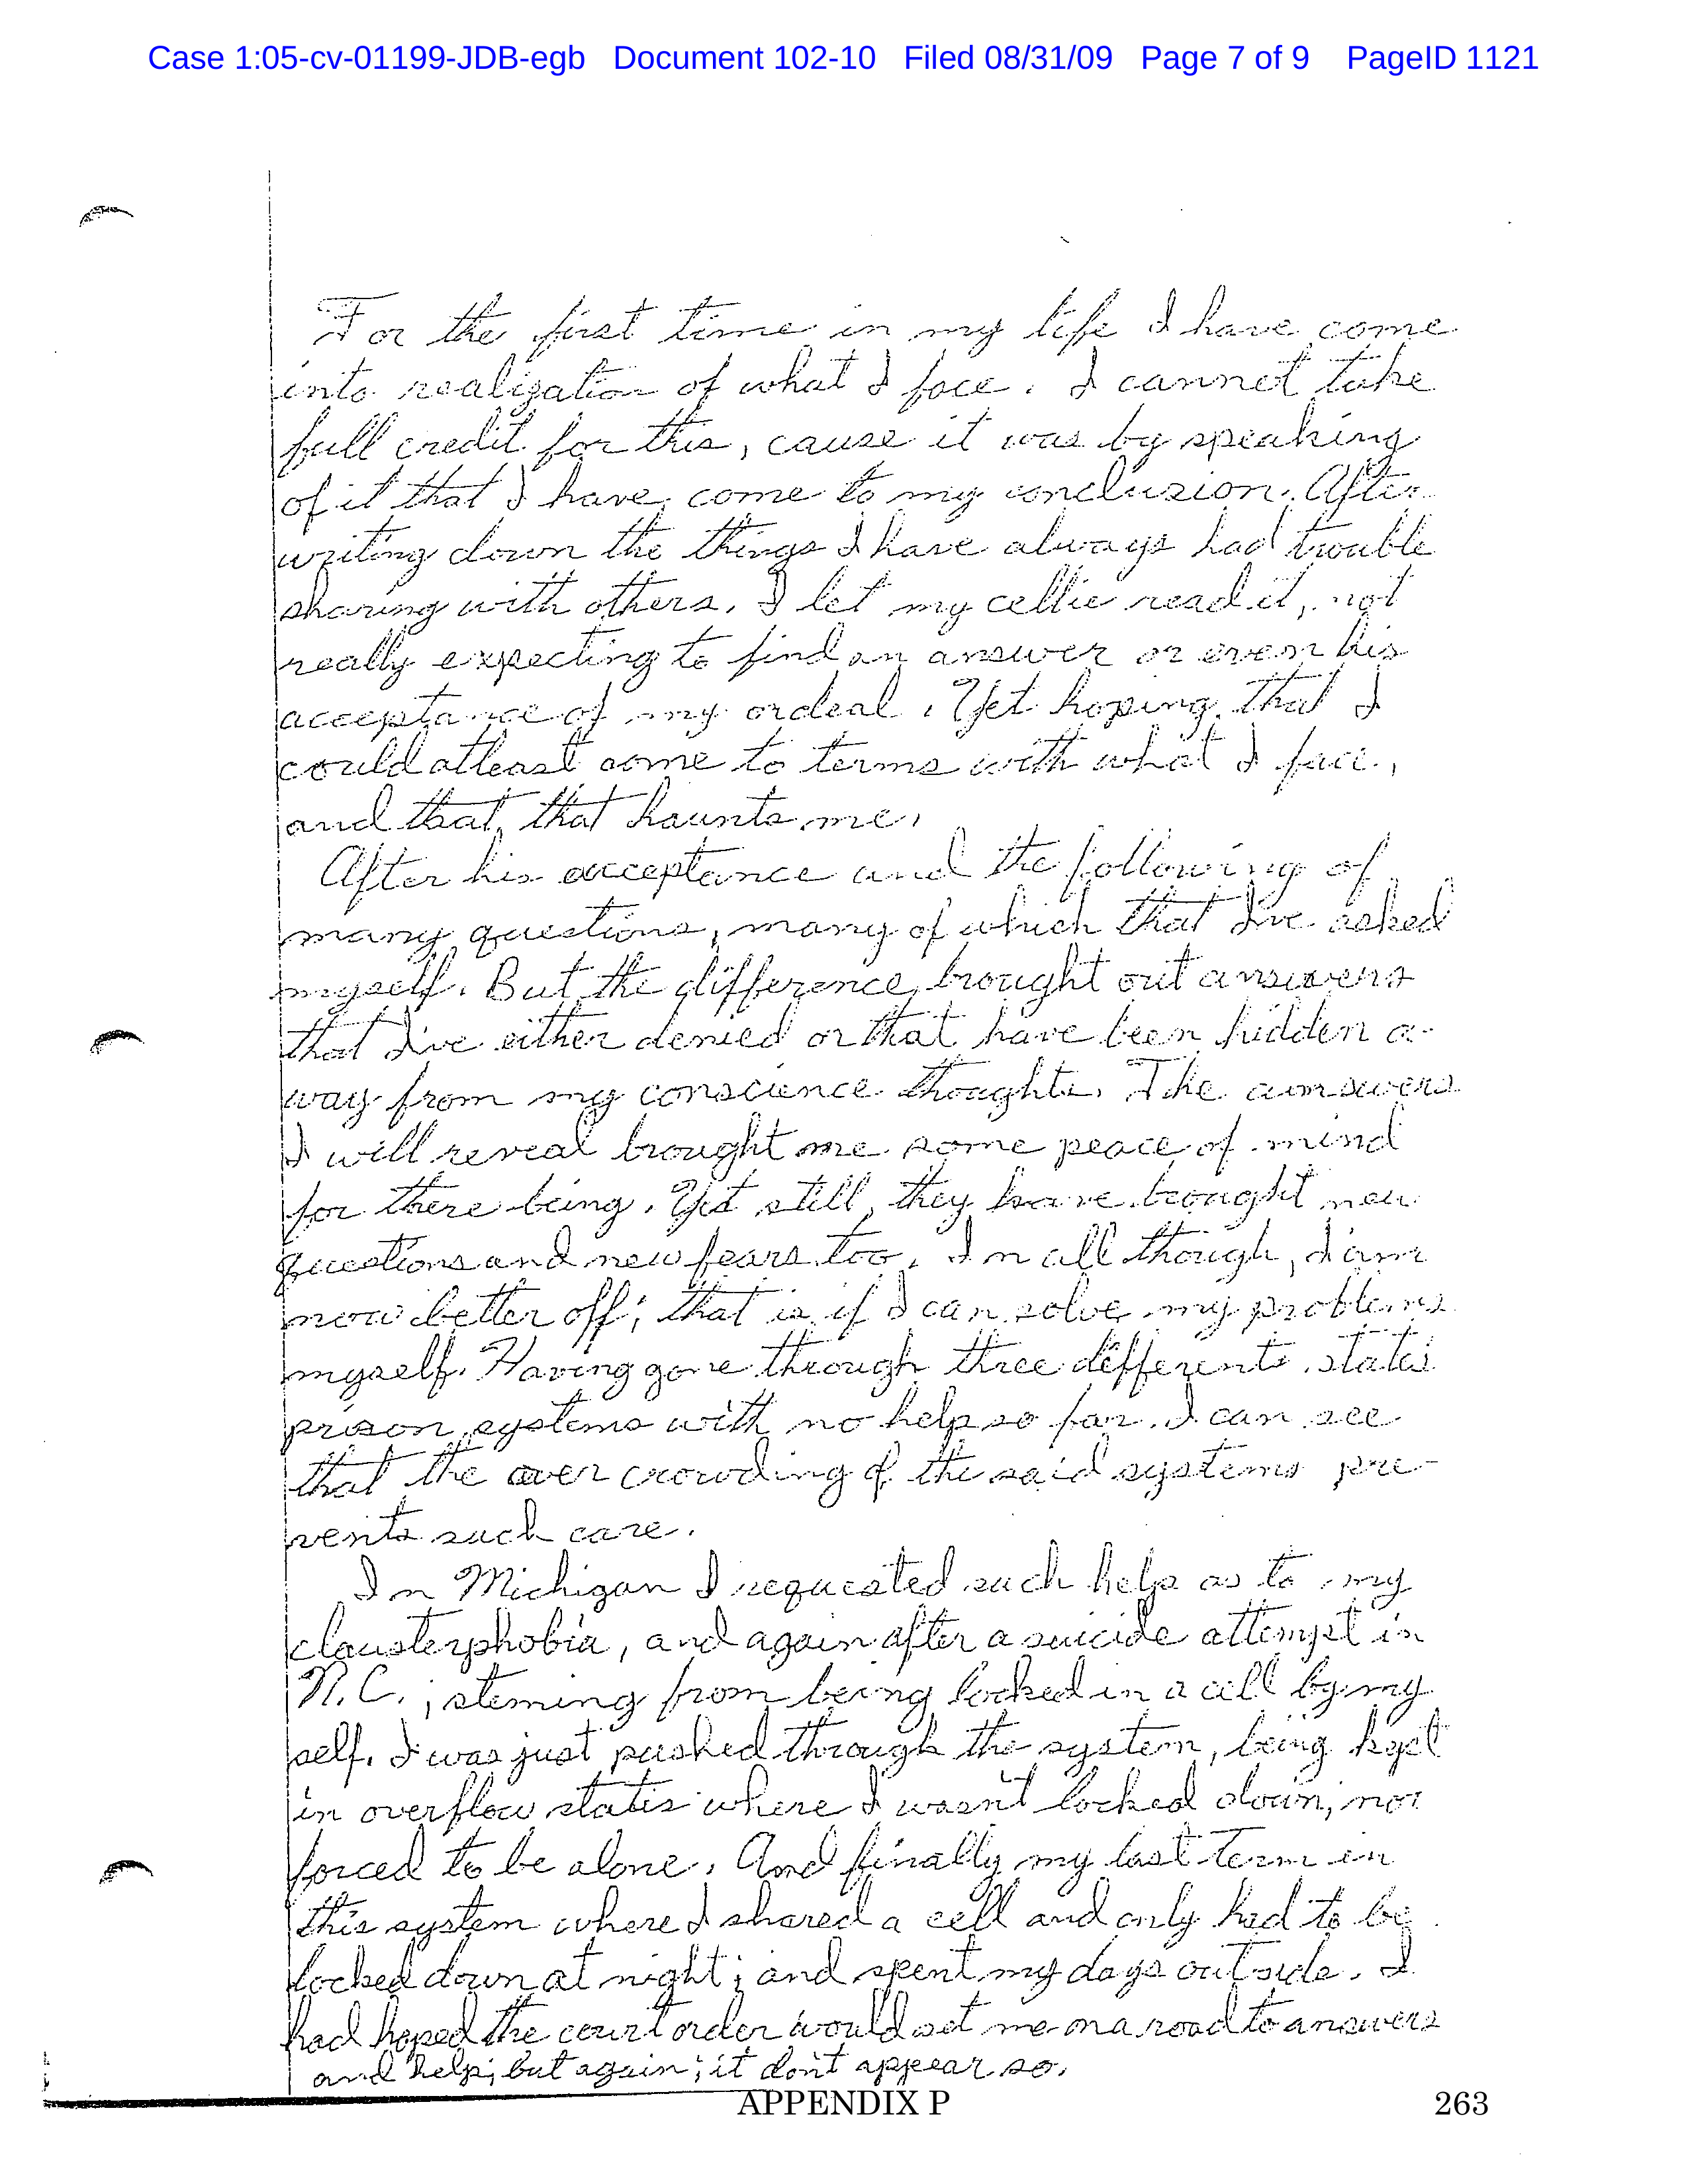 Case 1:05-cv-01199-JDB-egb   Document 102-10   Filed 08/31/09   Page 7 of 9    PageID 1121
For the first time in my life I have come
into realization of what I face. I cannot take
full credit for this, cause it was by speaking
of it that I have come to my conclusion. After
writing down the things I have always had trouble
sharing with others. I let my cellie read it, not
really expecting to find an answer or even his
acceptance of my ordeal. Yet hoping that I
could atleast come to terms with what I face,
and that, that haunts me.
After his acceptance and the following of
many questions, many of which that I've asked
myself. But the difference, brought out answers
that I've either denied or that have been hidden a-
way from my conscience thoughts. The answers
I will reveal brought me some peace of mind
for there being. Yet still, they have brought new
questions and new fears too. In all though, I am
now better off; that is if I can solve my problems
myself. Having gone through three different states
prison systems with no help so far. I can see
that the over crowding of the said systems pre-
vents such care.
In Michigan I requested such help as to my
clausterphobia, and again after a suicide attempt in
N.C.; steming from being locked in a cell by my
self. I was just pushed through the system, being kept
in overflow states where I wasn't locked down, nor
forced to be alone. And finally my last term in
this system where I shared a cell and only had to be
locked down at night; and spent my days outside. I
had hoped the court order would set me on a road to answers
and help; but again; it don't appear so.
APPENDIX P	263